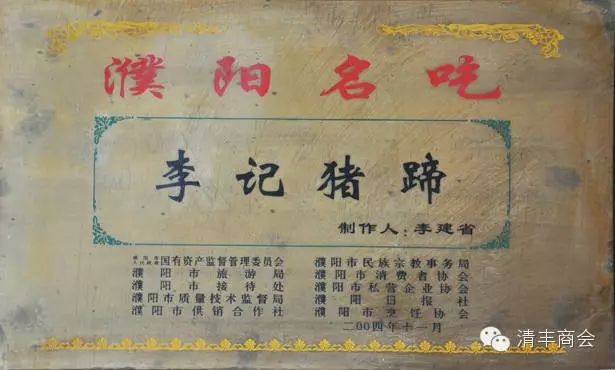 濮阳名吃
李记猪蹄
制作人:李建省
濮阳市人民政府国有资产监督管理委员会
濮阳市旅游局
濮阳市接待处
濮阳市质量技术监督局
濮阳市供销合作社
濮阳市民族宗教事务局
濮阳市消费者协会
濮阳市私营企业协会
濮阳日报社
濮阳市烹饪协会
二〇〇四年十一月
清丰商会